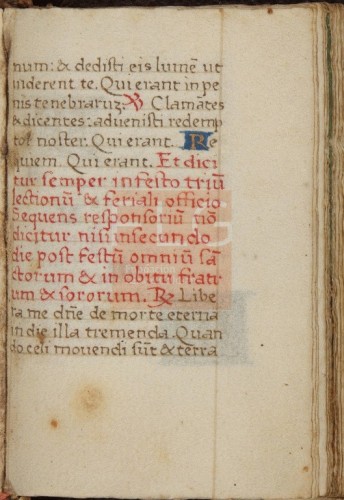 num: & dedisti eis lumē ut
viderent te. Qui erant in pe
nis tenebraruz. ℣ Clamātes
& dicentes: advenisti redemp
tor noster. Qui erant. Re
quiem. Qui erant. Et dici
tur semper in festo triū
lectionū & feriali officio
Sequens responsoriū nō
dicitur nisi in secundo
die post festū omniū sā
ctorum & in obitu fratr
um & sororum. ℟ Libe
ra me dn̄e de morte eterna
in die illa tremenda. Quan
do celi movendi sūt & terra